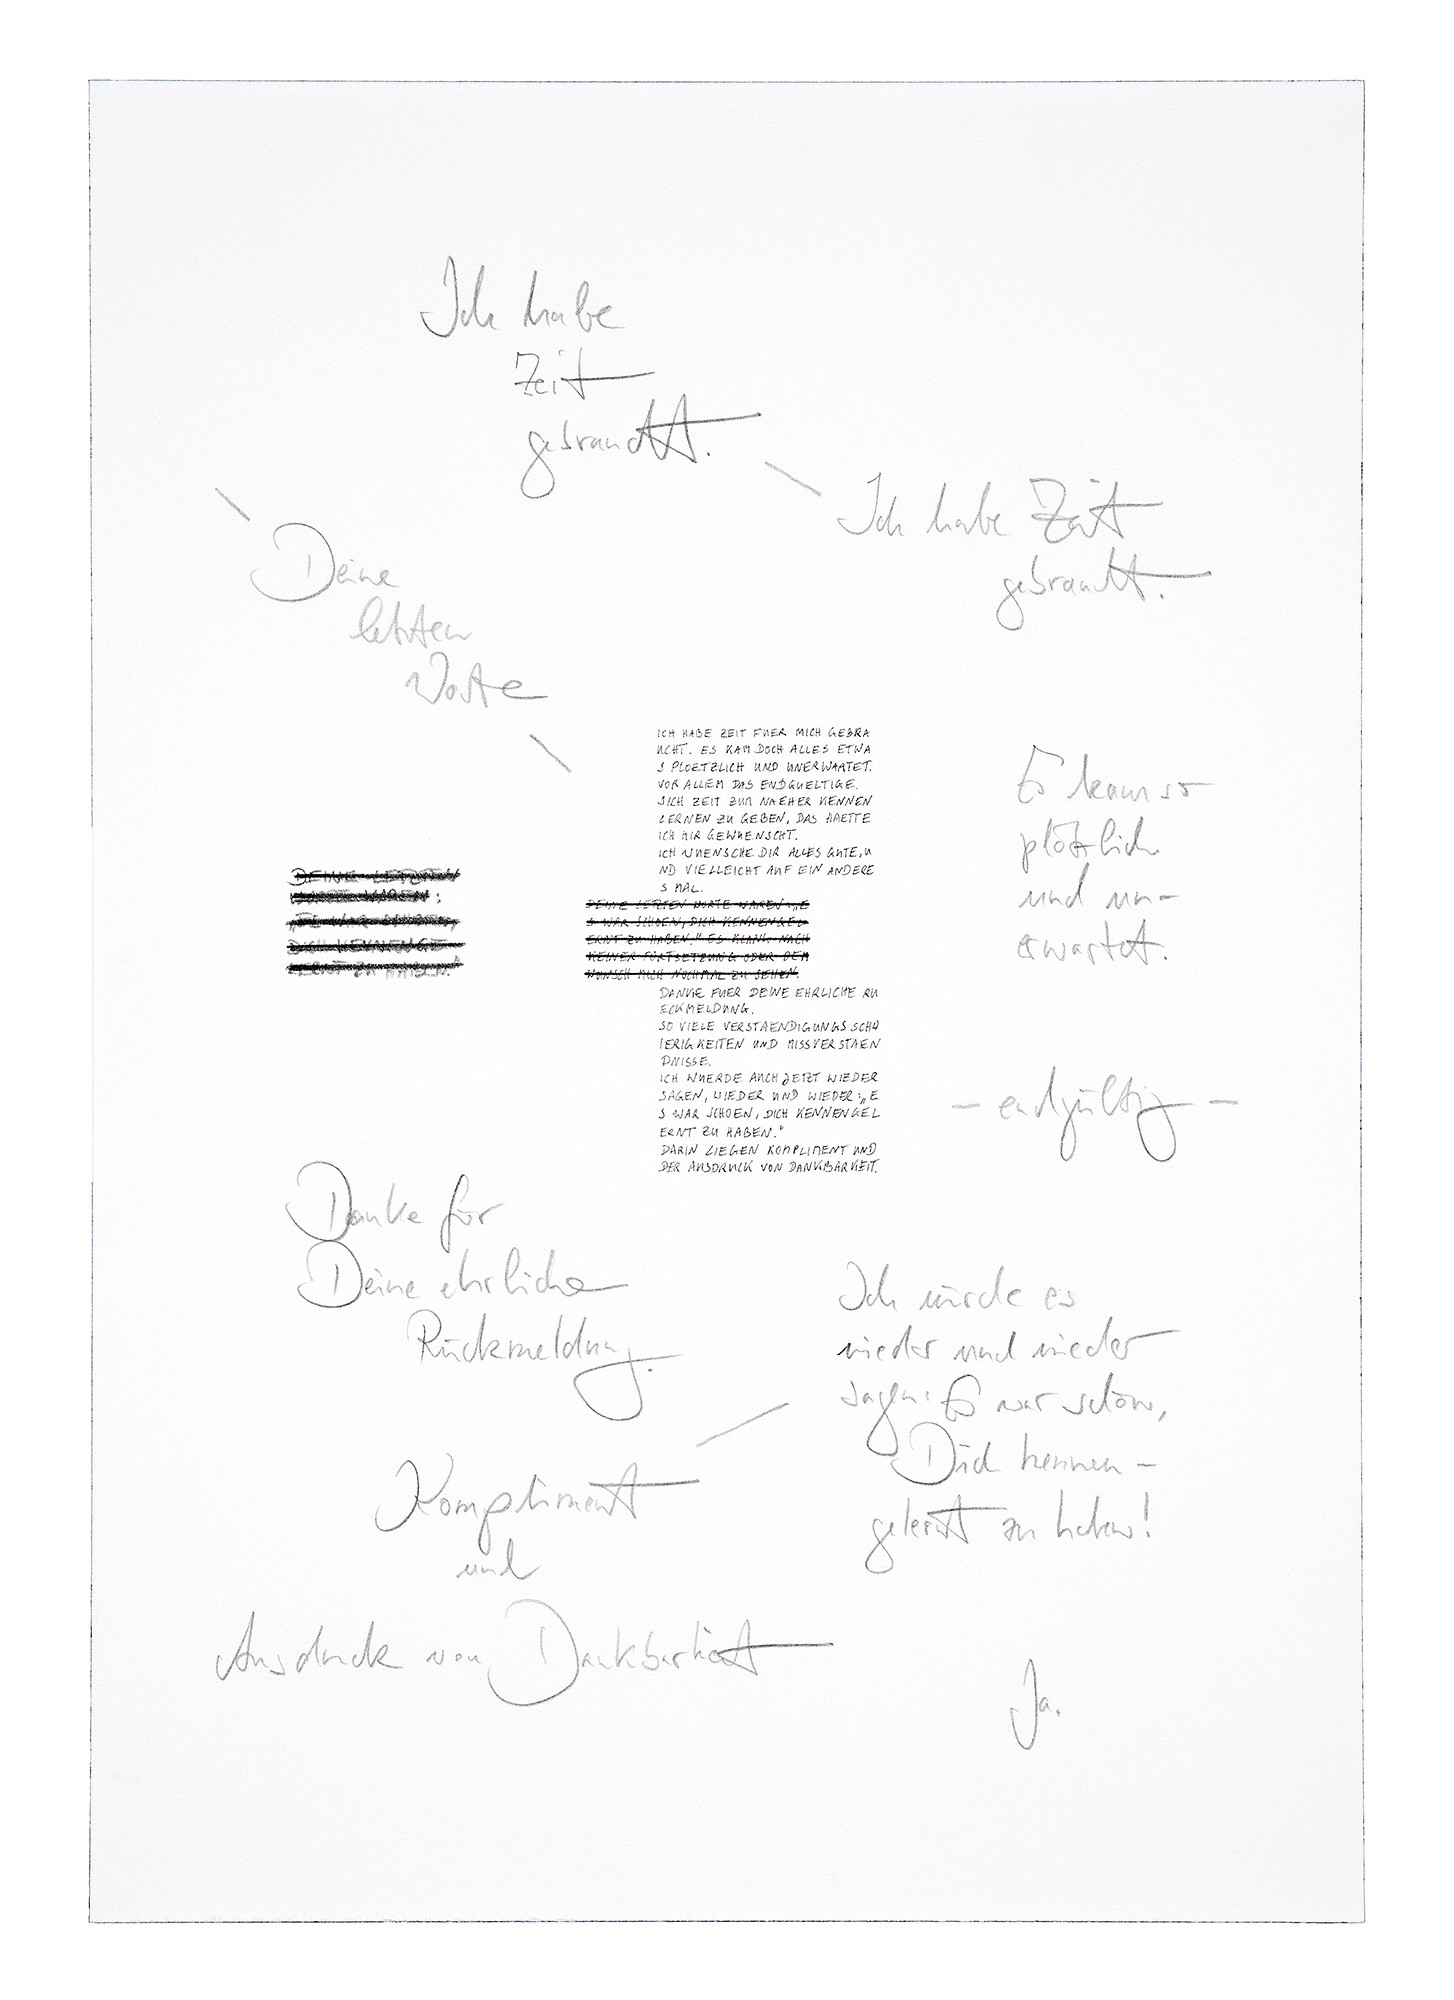 Ich habe
Zeit
gebraucht.
Ich habe Zeit
gebraucht.
Deine
letzten
Worte
ICH HABE ZEIT FUER MICH GEBRA
UCHT. ES KAM DOCH ALLES ETWA
S PLOETZLICH UND UNERWARTET.
VOR ALLEM DAS ENDGUELTIGE.
SICH ZEIT ZUM NAEHER KENNEN
LERNEN ZU GEBEN, DAS HAETTE
ICH MIR GEWUENSCHT.
ICH WUENSCHE DIR ALLES GUTE, U
ND VIELLEICHT AUF EIN ANDERE
S MAL.
DEINE LETZTEN WORTE WAREN: „E
S WAR SCHOEN, DICH KENNENGEL
ERNT ZU HABEN." ES KLANG NACH
KEINER FORTSETZUNG ODER DEM
WUNSCH MICH NOCHMAL ZU SEHEN.
DANKE FUER DEINE EHRLICHE RU
ECKMELDUNG.
SO VIELE VERSTAENDIGUNGSSCHW
IERIGKEITEN UND MISSVERSTAEN
DNISSE.
ICH WUERDE AUCH JETZT WIEDER
SAGEN, WIEDER UND WIEDER: „E
S WAR SCHOEN, DICH KENNENGEL
ERNT ZU HABEN."
DARIN LIEGEN KOMPLIMENT UND
DER AUSDRUCK VON DANKBARKEIT.
DEINE LETZTEN
WORTE WAREN:
„ES WAR SCHOEN,
DICH KENNENGE
LERNT ZU HABEN."
Es kam so
plötzlich
und un-
erwartet.
- endgültig -
Danke für
Deine ehrliche
Rückmeldung.
Ich würde es
wieder und wieder
sagen: Es war schön,
Dich kennen-
gelernt zu haben!
Kompliment
und
Ausdruck von Dankbarkeit
Ja.